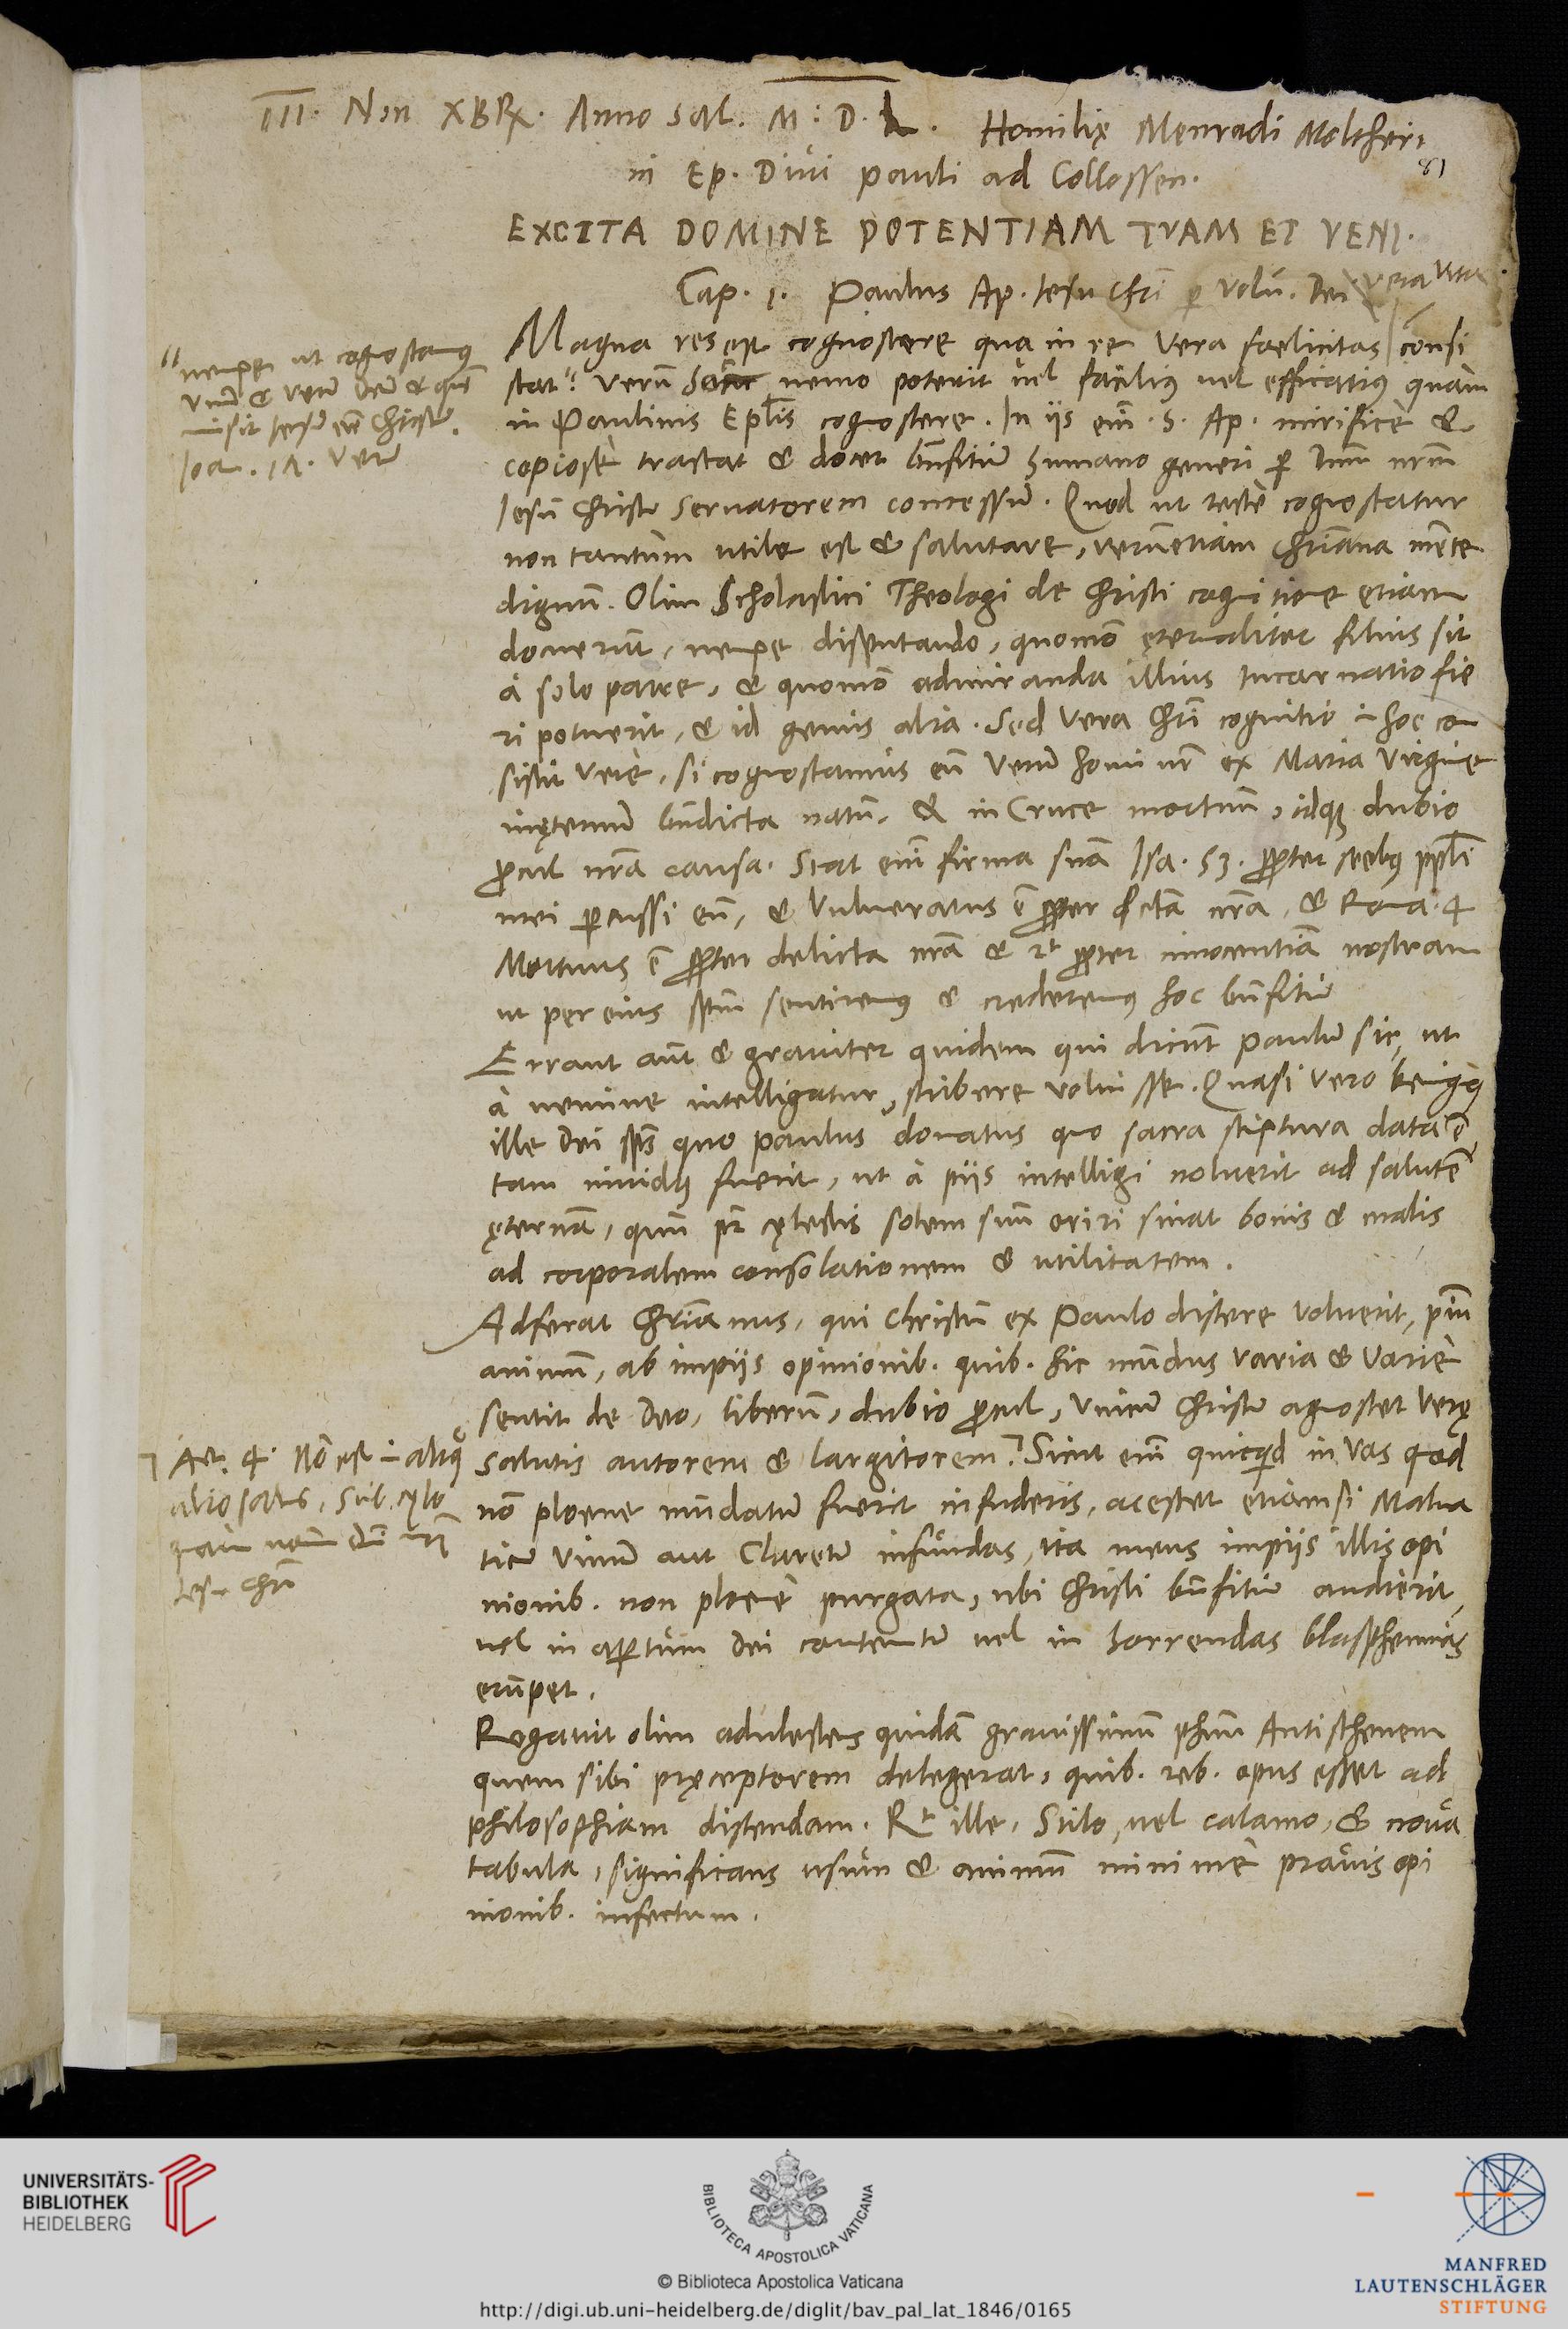 III. Non XBR. Anno Sal. M: D. L. Homilię Menradi Moltheri
81
in Ep. Divi Pauli ad Collossen.
EXCITA DOMINE POTENTIAM TVAM ET VENI.
Cap. 1. Paulus Ap. Iesu Chri p volū. Dei
Magna res est cognoscere qua in re vera faelicitas consi
stat" Verū nemo poterit vel facilius vel efficatius quam
in Paulinis Eplis cognoscere. In iis em S. Ap. mirifice &
copiose tractat & docet bnfitiū humano generi p Dnm nrm
Iesū Christū Servatorem concessū. Quod ut recte cognoscatur
non tantum utile est & salutare, verūetiam Chriana mēte
dignū. Olim Scholastici Theologi de Christi cognitione etiam
docuerūt, nempe disputando, quomō ęternaliter filius sit
à solo patre, & quomō admiranda illius Incarnatio fie
ri potuerit, & id genus alia. Sed vera Chri cognitio in hoc con
sistit vere, si cognoscamus eū verū homi nr ex Maria Virgine
inęternū bndicta natū, & in Cruce mortuū, idq dubio
procul nra causa. Stat em firma snā Isa. 53. propter scelus ppli
mei percussi eū, & Vulneratus ē propter nra, & Roma. 4
Mortuus ē propter delicta nra & propter innocentiā nostram
ut per eius spm sentiremus & crederemus hoc bnfitiū
Errant aūt & graviter quidem qui dicūt Paulū sic, ut
à nemine intelligatur, scribere voluisse. Quasi vero benignus
ille Dei sps quo Paulus donatus quo sacra scriptura data ē
tam invidus fuerit, ut à piis intelligi noluerit ad salutē
ęternā, quū pr cęlestis solem suū oriri sinat bonis & malis
ad corporalem consolationem & utilitatem.
Adferat Chrianus, qui Christū ex Paulo discere voluerit, piū
animū, ab impiis opinionib. quib. hic mūdus varia & varie
sentit de Deo, liberū, dubio procul, unicū Christū agnoscet verę
salutis autorem & largitorem. Sicut em quicqd in vas quod
nō plene mūdatū fuerit infuderis, acescet etiamsi Malva
ticū vinū aut Claretū infundas, ita mens impiis illis opi
nionib. non plene purgata, ubi Christi bnfitiū audierit,
vel in apertum Dei contemtū vel in horrendas blasphemias
erūpet.
Rogavit olim adulescens quidā gravissimū phm Antisthenem
quem sibi pręceptorem delegerat, quib. reb. opus esset ad
philosophiam discendam. R ille, Stilo, vel calamo, & nova
tabula, significans usum & animū minime pravis opi
nionib. infectum.
"nempe ut cognoscamus
unū & verū Deū & quē
misit Iesū Christū.
Ioa. 17. Verū
Act. 4. Nō est in aliquo
alio salus, sub cęlo
Iesu Chri
UNIVERSITÄTS-
BIBLIOTHEK
HEIDELBERG
BIBLIOTECA APOSTOLICA VATICANA
© Biblioteca Apostolica Vaticana
http://digi.ub.uni-heidelberg.de/diglit/bav_pal_lat_1846/0165
MANFRED
LAUTENSCHLÄGER
STIFTUNG